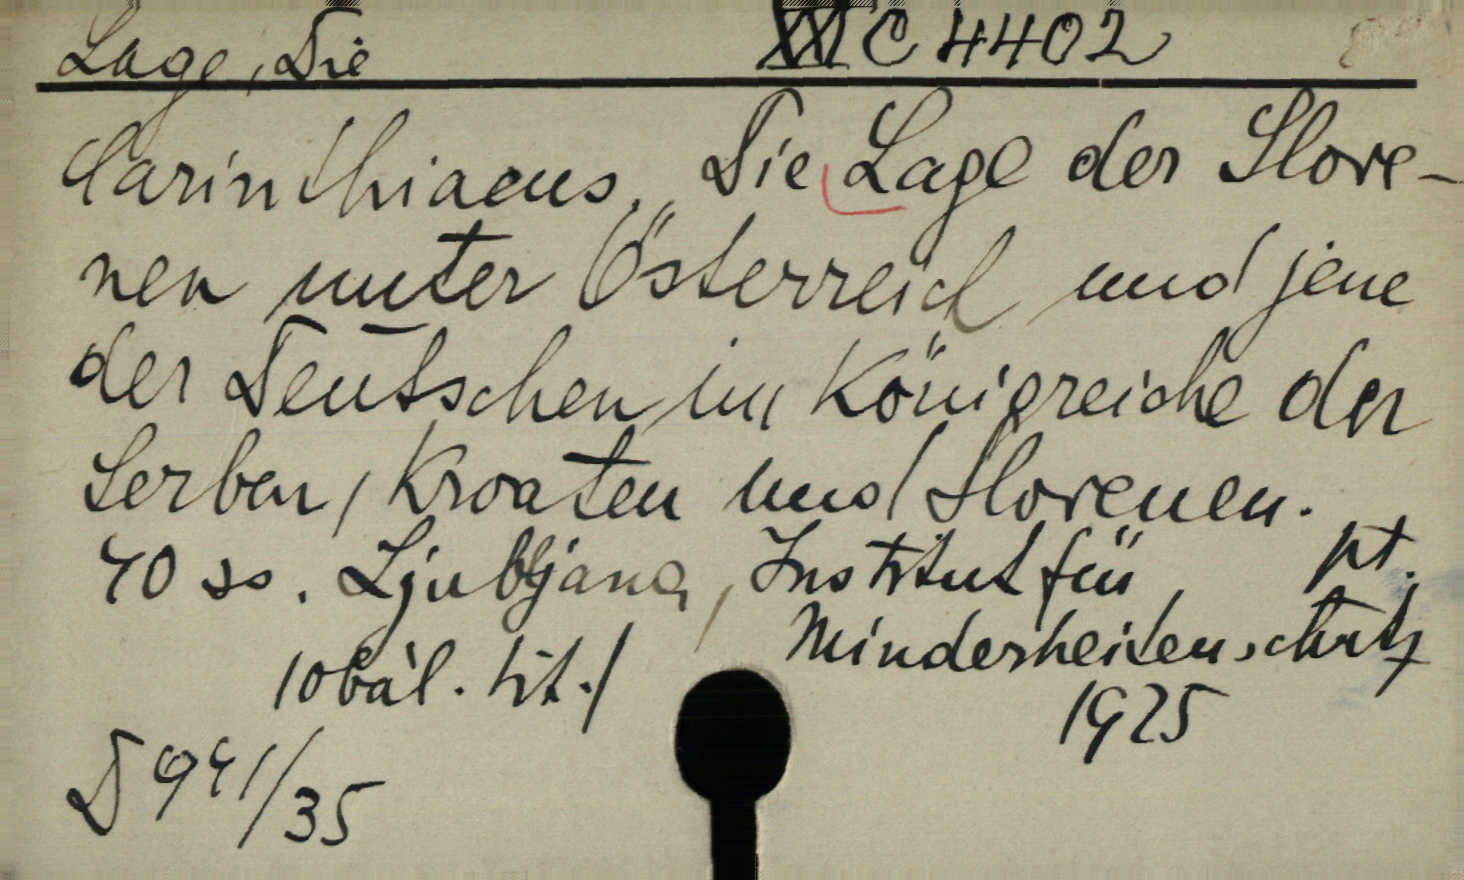 Lage, Die XXI C 4402
Carinthiacus, Die Lage der Slove-
nen unter Österreich und jene
der Deutschen im Königreiche der
Serben, Kroaten und Slovenen.
40 ss. Ljubljana, Institut für pt.
Minderheitenschutz
/obál. tit./
1925
D 941/35